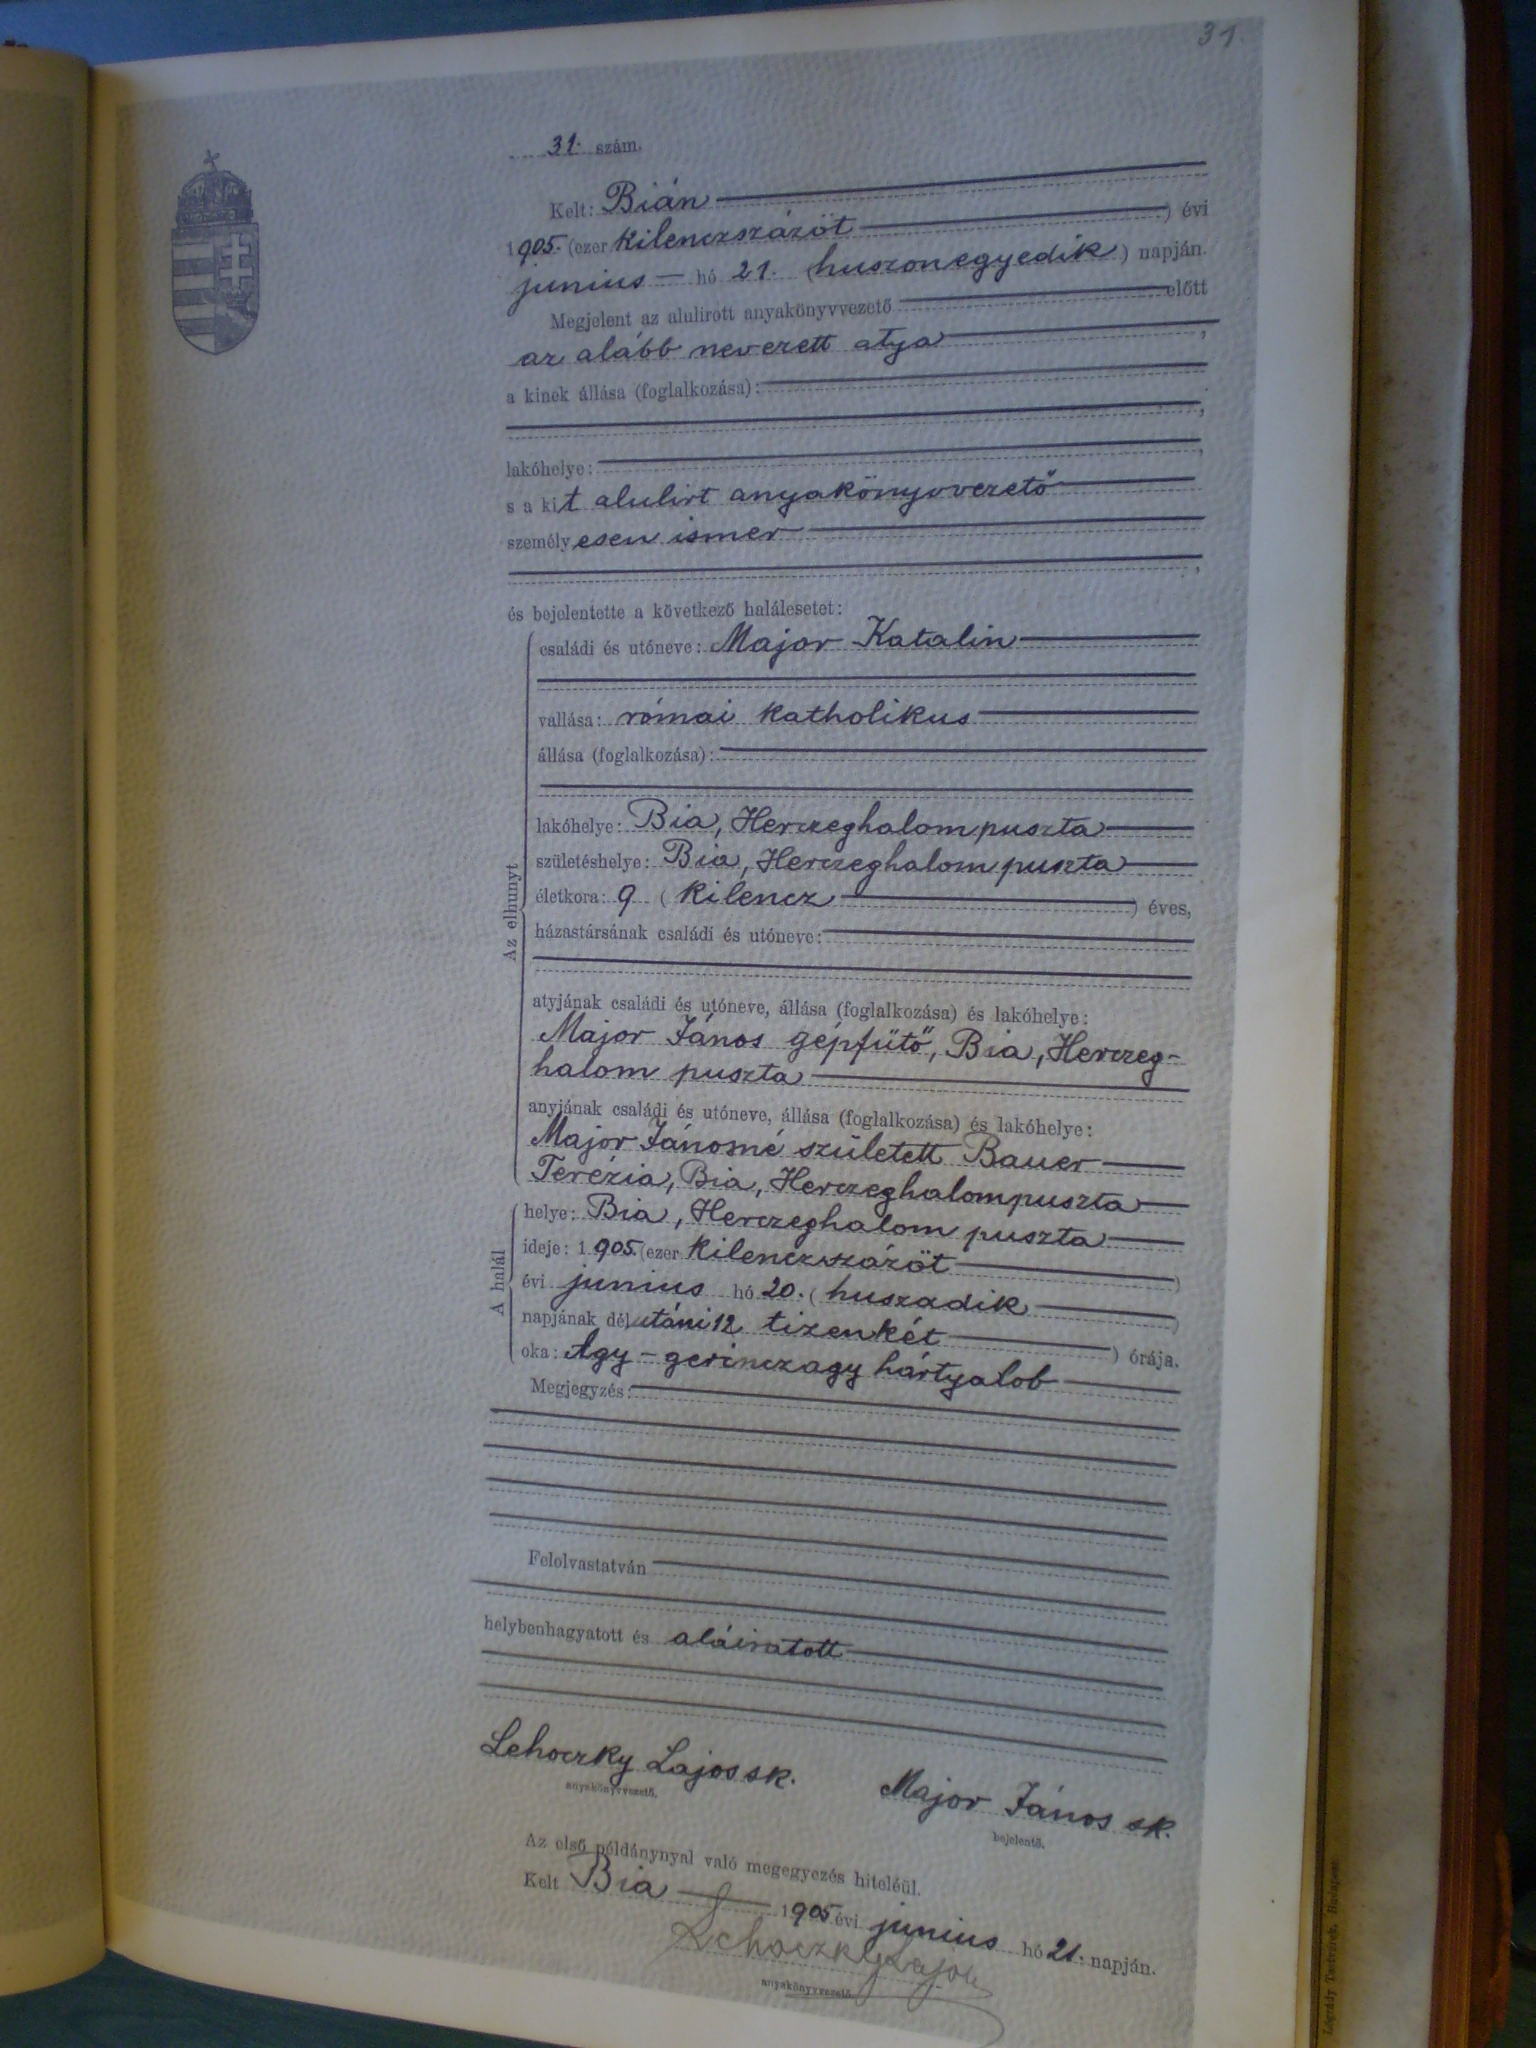 31.
31. szám.
Kelt: Bián
1905. (ezer kilenczszázöt) évi
junius hó 21. (huszonegyedik) napján.
Megjelent az alulirott anyakönyvvezető előtt
az alább nevezett atya,
a kinek állása (foglalkozása):
,
lakóhelye: ,
s a kit alulirt anyakönyvvezető
személyesen ismer
,
és bejelentette a következő halálesetet:
Az elhunyt
családi és utóneve: Major Katalin
vallása: római katholikus
állása (foglalkozása):
lakóhelye: Bia, Herczeghalompuszta
születéshelye: Bia, Herczeghalom puszta
életkora: 9 (kilencz) éves,
házastársának családi és utóneve:
atyjának családi és utóneve, állása (foglalkozása) és lakóhelye:
Major János gépfütő, Bia, Herczeg-
halom puszta
anyjának családi és utóneve, állása (foglalkozása) és lakóhelye:
Major Jánosné született Bauer
Terézia, Bia, Herczeghalompuszta
A halál
helye: Bia, Herczeghalom puszta
ideje: 1905. (ezer kilenczszázöt)
évi junius hó 20. (huszadik)
napjának délutáni 12 tizenkét) órája.
oka: Agy - gerinczagy hártyalob
Megjegyzés:
Felolvastatván
helybenhagyatott és aláiratott
Lehoczky Lajos sk. Major János sk.
anyakönyvvezető. bejelentő.
Az első példánynyal való megegyezés hiteléül.
Kelt Bia 1905 évi junius hó 21. napján.
Lehoczky Lajos
anyakönyvvezető.
Légrády Testvérek, Budapest